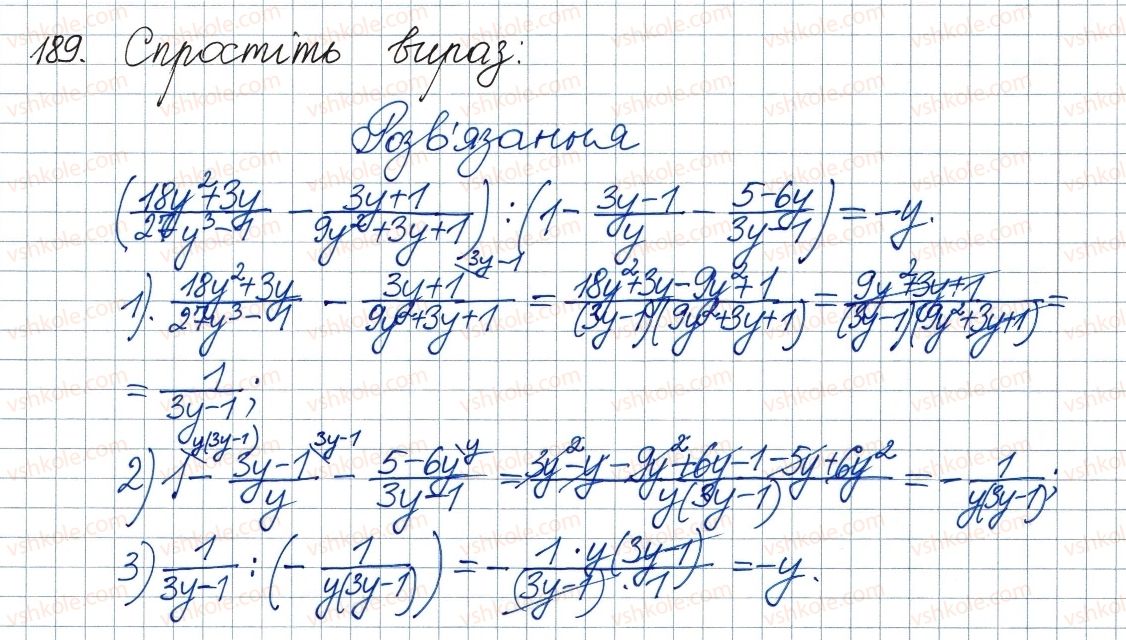 189. Спростіть вираз:
Розв'язання
((18y²+3y)/(27y³-1) - (3y+1)/(9y²+3y+1)) : (1 - (3y-1)/y - (5-6y)/(3y-1)) = -y.
1). (18y²+3y)/(27y³-1) - (3y+1)/(9y²+3y+1) ^(3y-1) = (18y²+3y-9y²+1)/((3y-1)(9y²+3y+1)) = (9y²+3y+1)/((3y-1)(9y²+3y+1)) =
= 1/(3y-1);
2) 1 ^(y(3y-1)) - (3y-1)/y ^(3y-1) - (5-6y)/(3y-1) ^(y) = (3y²-y-9y²+6y-1-5y+6y²)/(y(3y-1)) = - 1/(y(3y-1));
3) 1/(3y-1) : (- 1/(y(3y-1))) = - (1·y(3y-1))/((3y-1)·1) = -y.